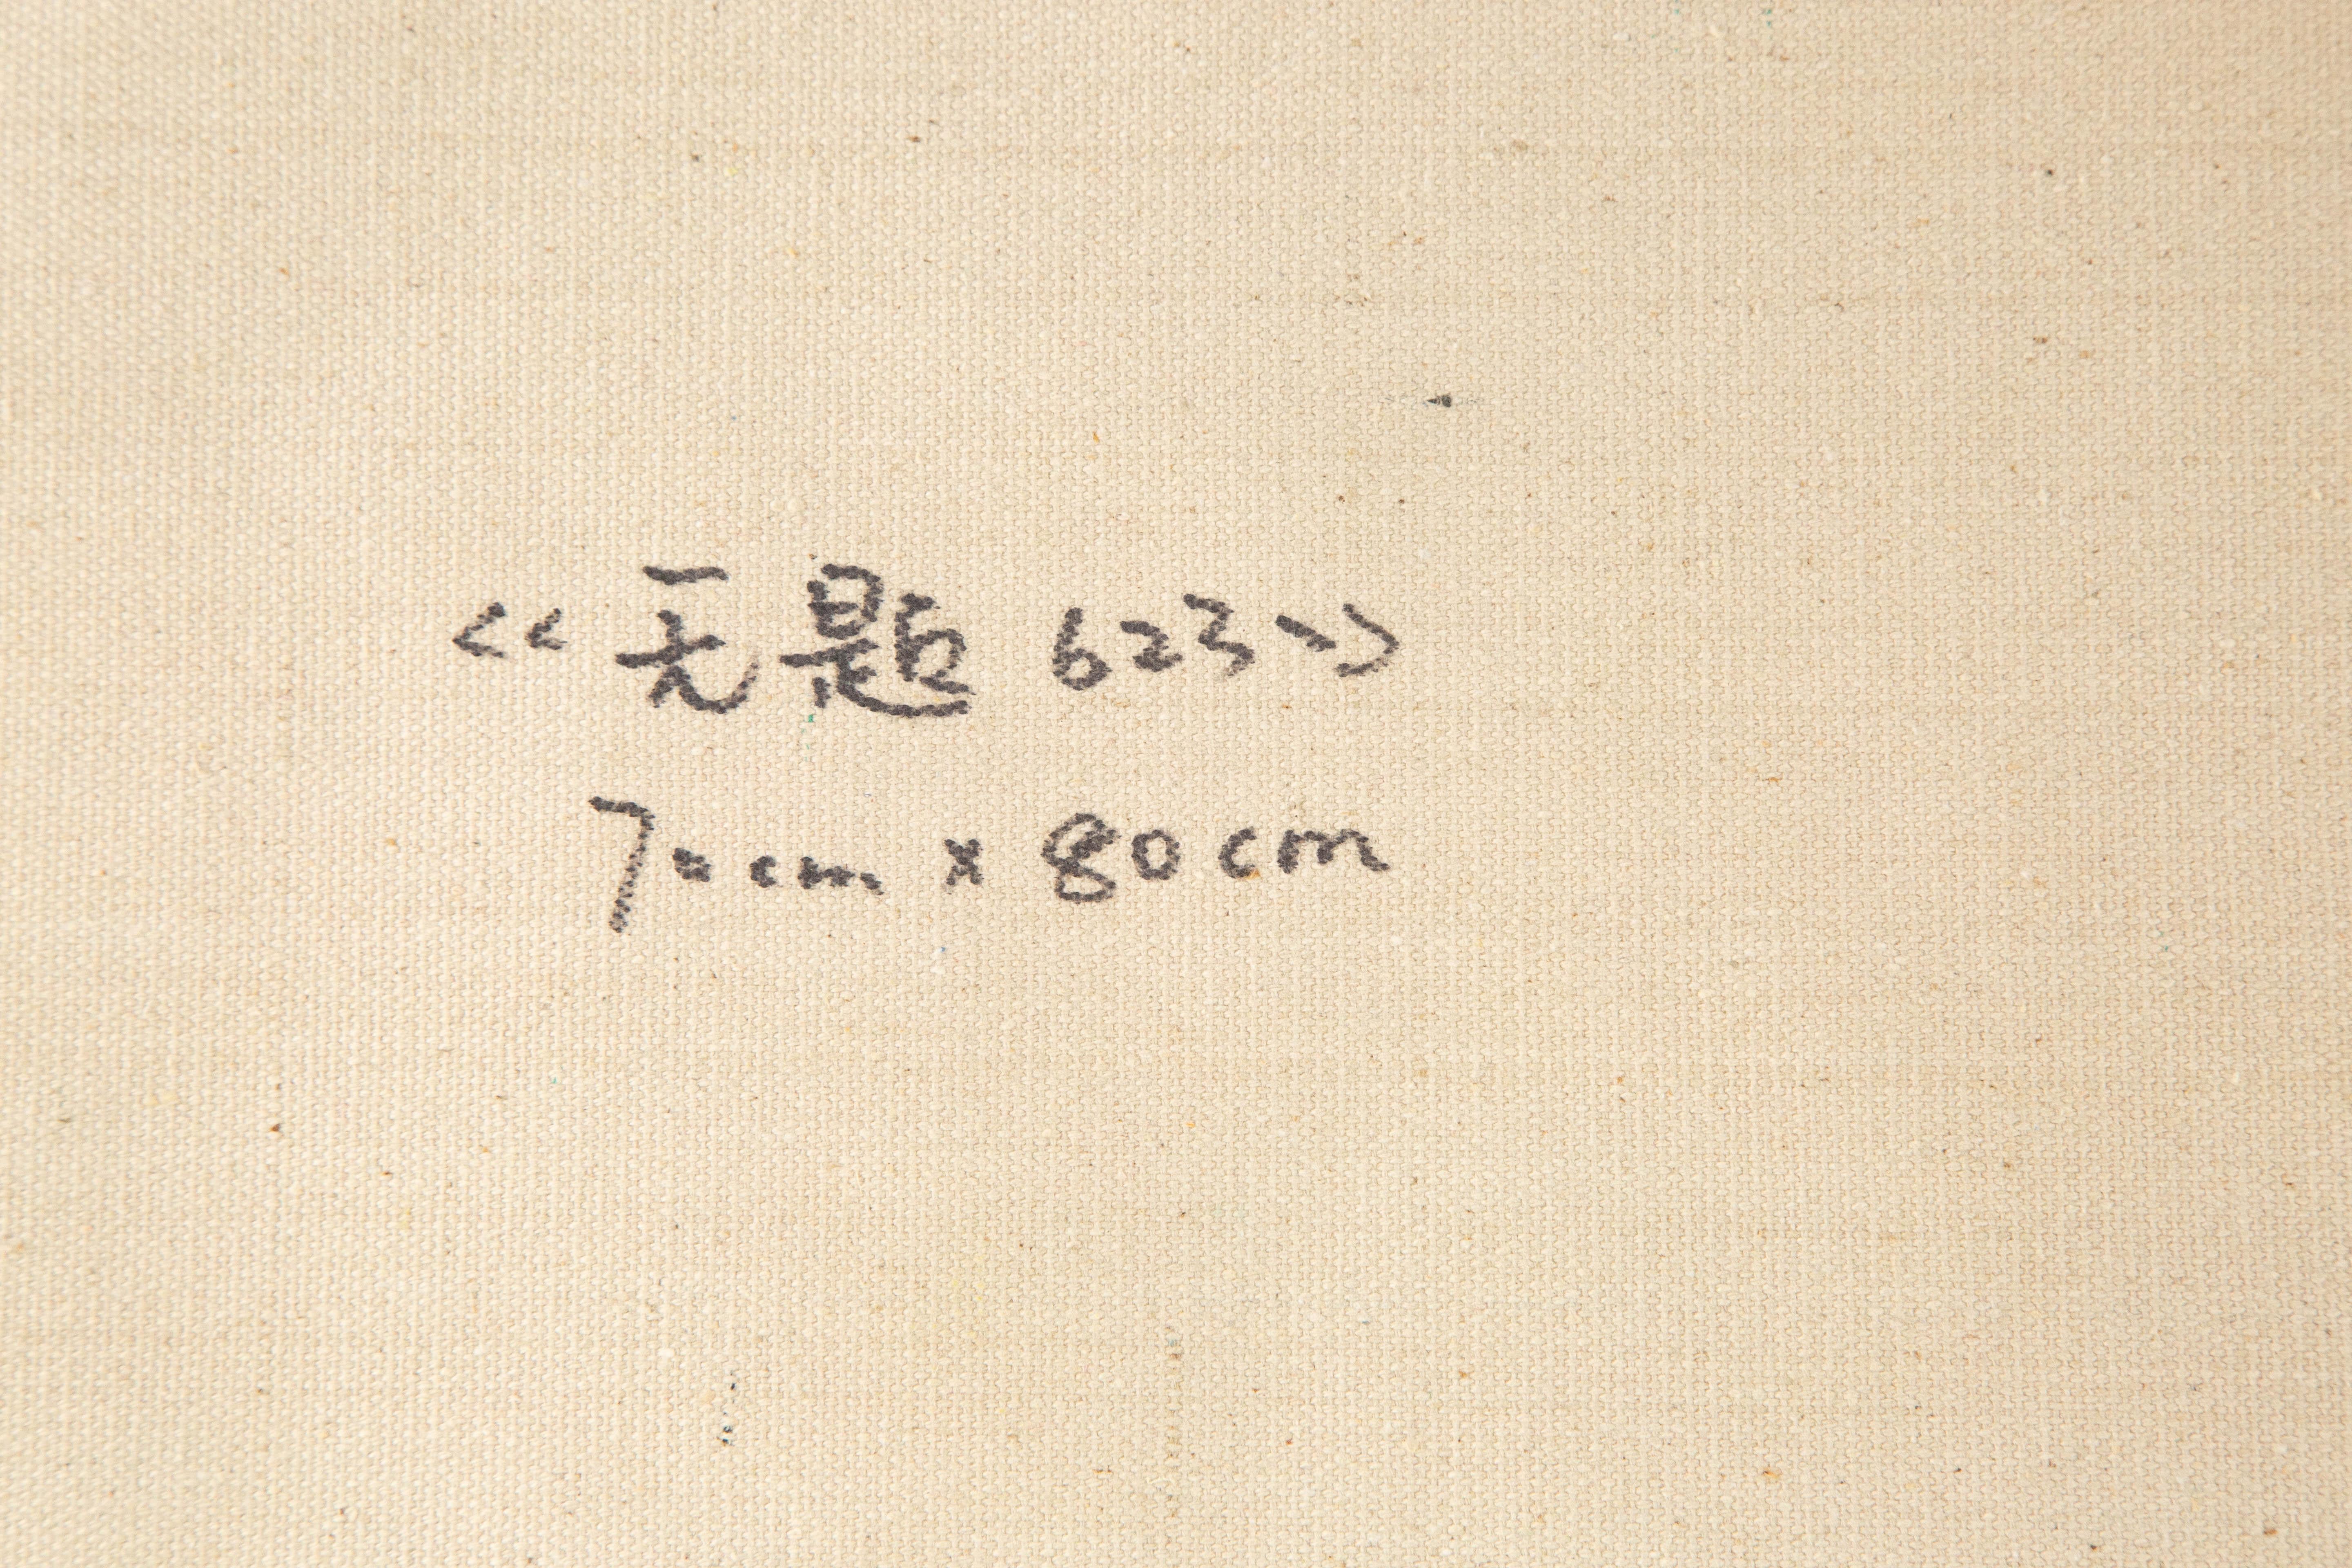 <<无题 623>>
70cm x 80cm